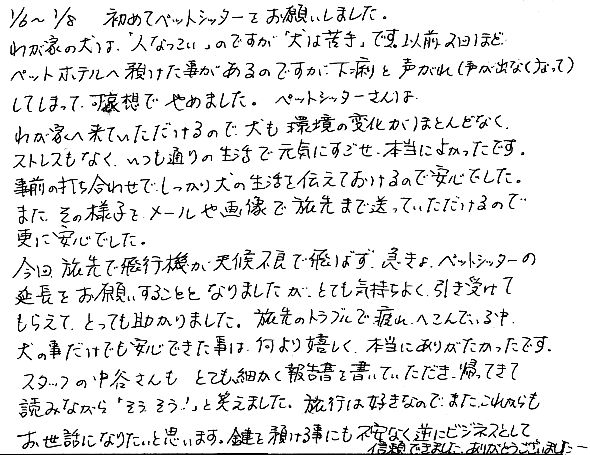 1/6～1/8 初めてペットシッターをお願いしました。
わが家の犬は、「人なつこい」のですが「犬は苦手」です。以前2回ほど
ペットホテルへ預けた事があるのですが、下痢と声がれ（声が出なくなって）
してしまって、可哀想でやめました。ペットシッターさんは
わが家へ来ていただけるので、犬も環境の変化がほとんどなく、
ストレスもなく、いつも通りの生活で元気にすごせ、本当によかったです。
事前の打ち合わせで、しっかり犬の生活を伝えておけるので安心でした。
また、その様子をメールや画像で旅先まで送っていただけるので
更に安心でした。
今回、旅先で飛行機が天候不良で飛ばず、急きょ、ペットシッターの
延長をお願いすることとなりましたが、とても気持ちよく、引き受けて
もらえて、とっても助かりました。旅先のトラブルで疲れ、へこんでいる中、
犬の事だけでも安心できた事は、何より嬉しく、本当にありがたかったです。
スタッフの中谷さんも とても細かく報告書を書いていただき、帰ってきて
読みながら「そう、そう！」と笑えました。旅行は好きなので、また、これからも
お世話になりたいと思います。鍵を預ける事にも不安なく逆にビジネスとして
信頼できました。ありがとうございました―